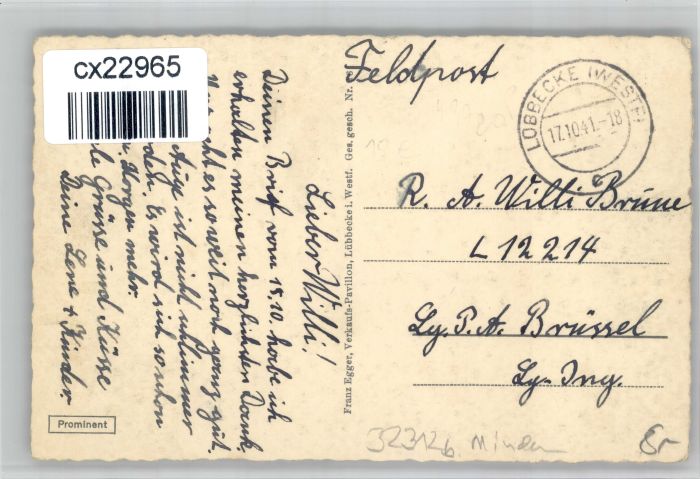 cx22965
Feldpost
LÜBBECKE (WESTF)
17.10.41.-18
Lieber Willi!
Deinen Brief vom 15.10. habe ich
erhalten meinen herzlichsten Dank.
geht es so weit noch ganz gut.
Auge ist nicht schlimmer
Es wird sich schon
mehr.
Grüsse und Küsse
Deine Lene + Kinder.
Franz Egger, Verkaufs-Pavillon, Lübbecke i. Westf. Ges. gesch. Nr.
R. A. Willi Brüne
L 12214
Lg. P. A. Brüssel
Lg-Ing.
Prominent
32312 b. Minden